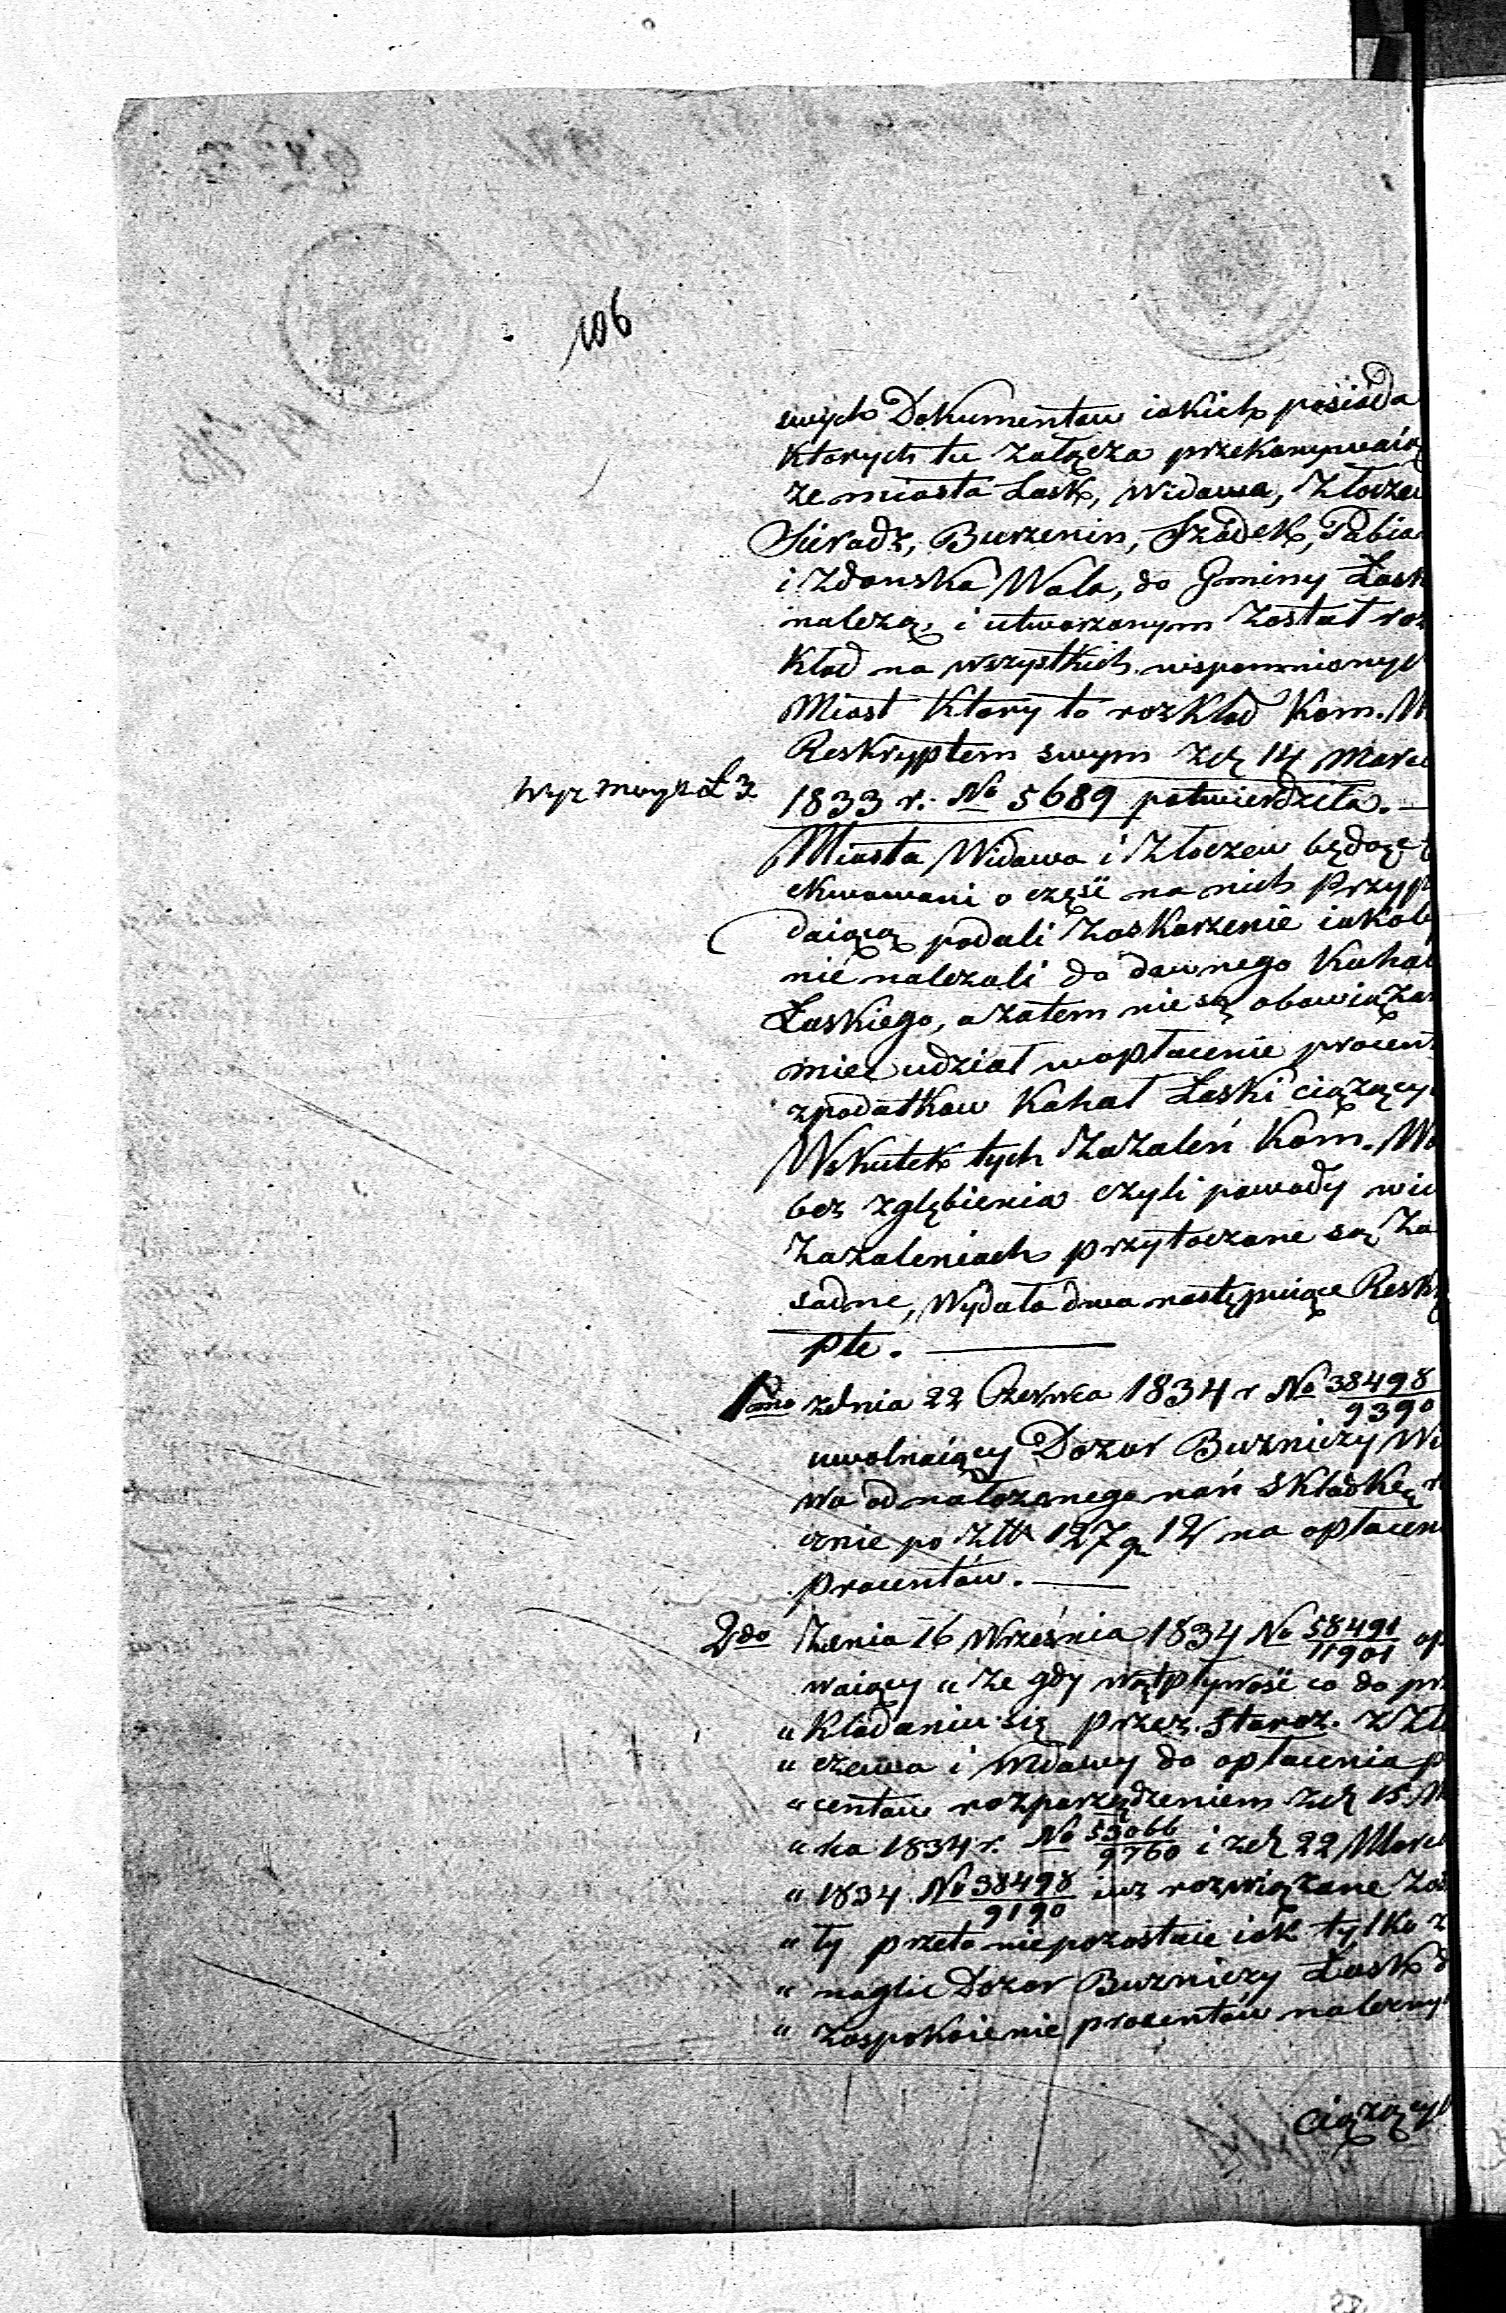 106
swych Dokumentow iakich posiada
ktorych tu załącza przekonywaią
że miasta Łask, Widawa, Złoczew
Sieradz, Burzenin, Szadek, Pabia
i Zdonska Wola, do Gminy Łask
należą, i utworzonym został roz
kład na wszystkich wspomnionych
Miast ktory to rozkład Kom. W
Reskryptem swym z d. 14 Marc
1833 r. No 5689 potwierdziła. —
Miasta Widawa i Złoczew będąc
ekwowani o część na nich Przyp
daiącą podali zaskarzenie iakoby
nie nalezali do dawnego Kahał
Łaskiego, a zatem nie są obowiązan
mieć udział w opłacenie procent
z podatkow Kahał Łaski ciążący
Wskutek tych Zażaleń Kom. Wo
bez zgłębienia czyli powody w
Zażaleniach przytoczone są Za
sadne, Wydała dwa następuiące Reskry
pte. —
1mo z dnia 22 Czerwca 1834 r No 38498/9390
uwolniaiący Dozor Buzniczy Wi
wa od nałożonego nań składkę r
cznie po Złt 127 g 12 na opłacen
procentów. —
2do Z dnia 16 Września 1834 No 58491/11901 op
waiący „ że gdy wątpliwość co do prz
„ kładaniu się przez Staroz. z Zło
„ czewa i Widawy do opłacenia p
„ centow rozporządzeniem z d. 15 M
„ ka 1834 r. No 53066/9760 i z d. 22 Marc
„ 1834 No 38498/9190 iuz rozwiązane zos
„ ty przeto nie pozostaie iak tylko z
„ naglić Dozor Buzniczy Łask d
„ zaspokoienie procentów należny
ciążący